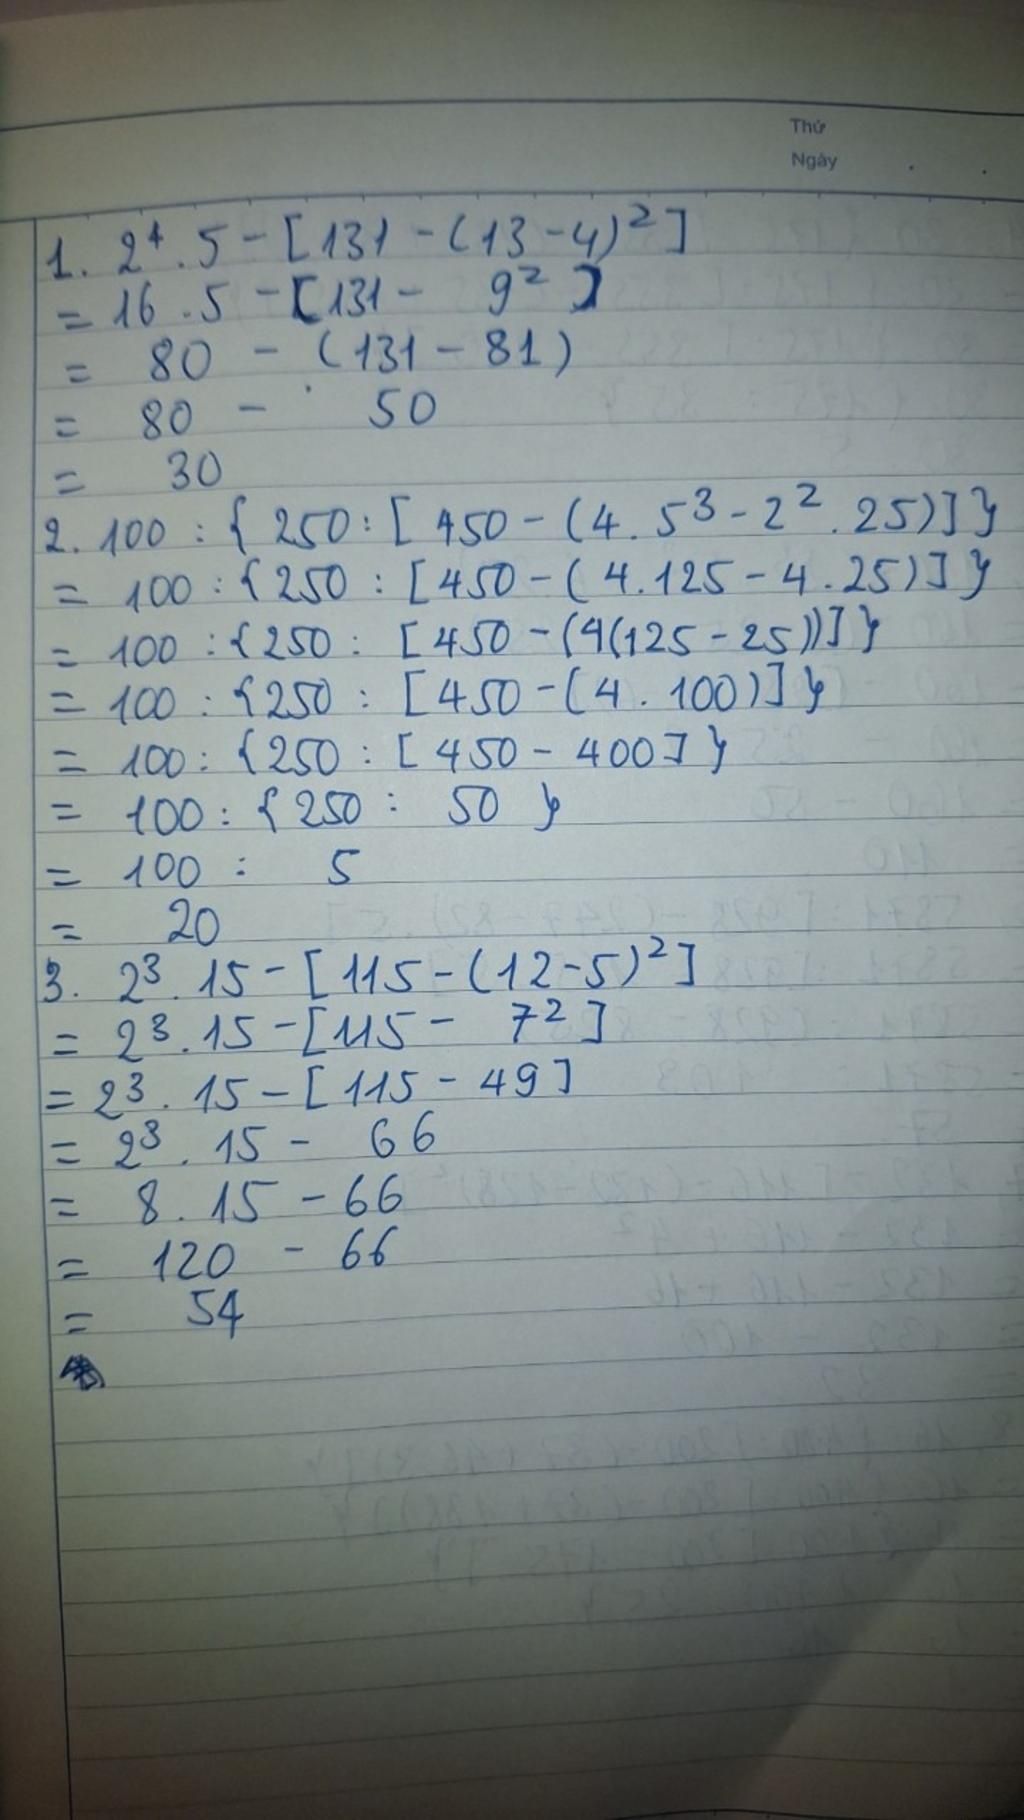 Thứ
Ngày
1. 2⁴ . 5 - [131 - (13 - 4)²]
= 16 . 5 - [131 - 9²]
= 80 - (131 - 81)
= 80 - 50
= 30
2. 100 : { 250 : [ 450 - (4 . 5³ - 2² . 25)] }
= 100 : {250 : [450 - ( 4 . 125 - 4 . 25)] }
= 100 : {250 : [450 - (4(125 - 25))] }
= 100 : {250 : [450 - (4 . 100)] }
= 100 : {250 : [450 - 400] }
= 100 : {250 : 50 }
= 100 : 5
= 20
3. 2³ . 15 - [115 - (12 - 5)²]
= 2³ . 15 - [115 - 7²]
= 2³ . 15 - [115 - 49]
= 2³ . 15 - 66
= 8 . 15 - 66
= 120 - 66
= 54